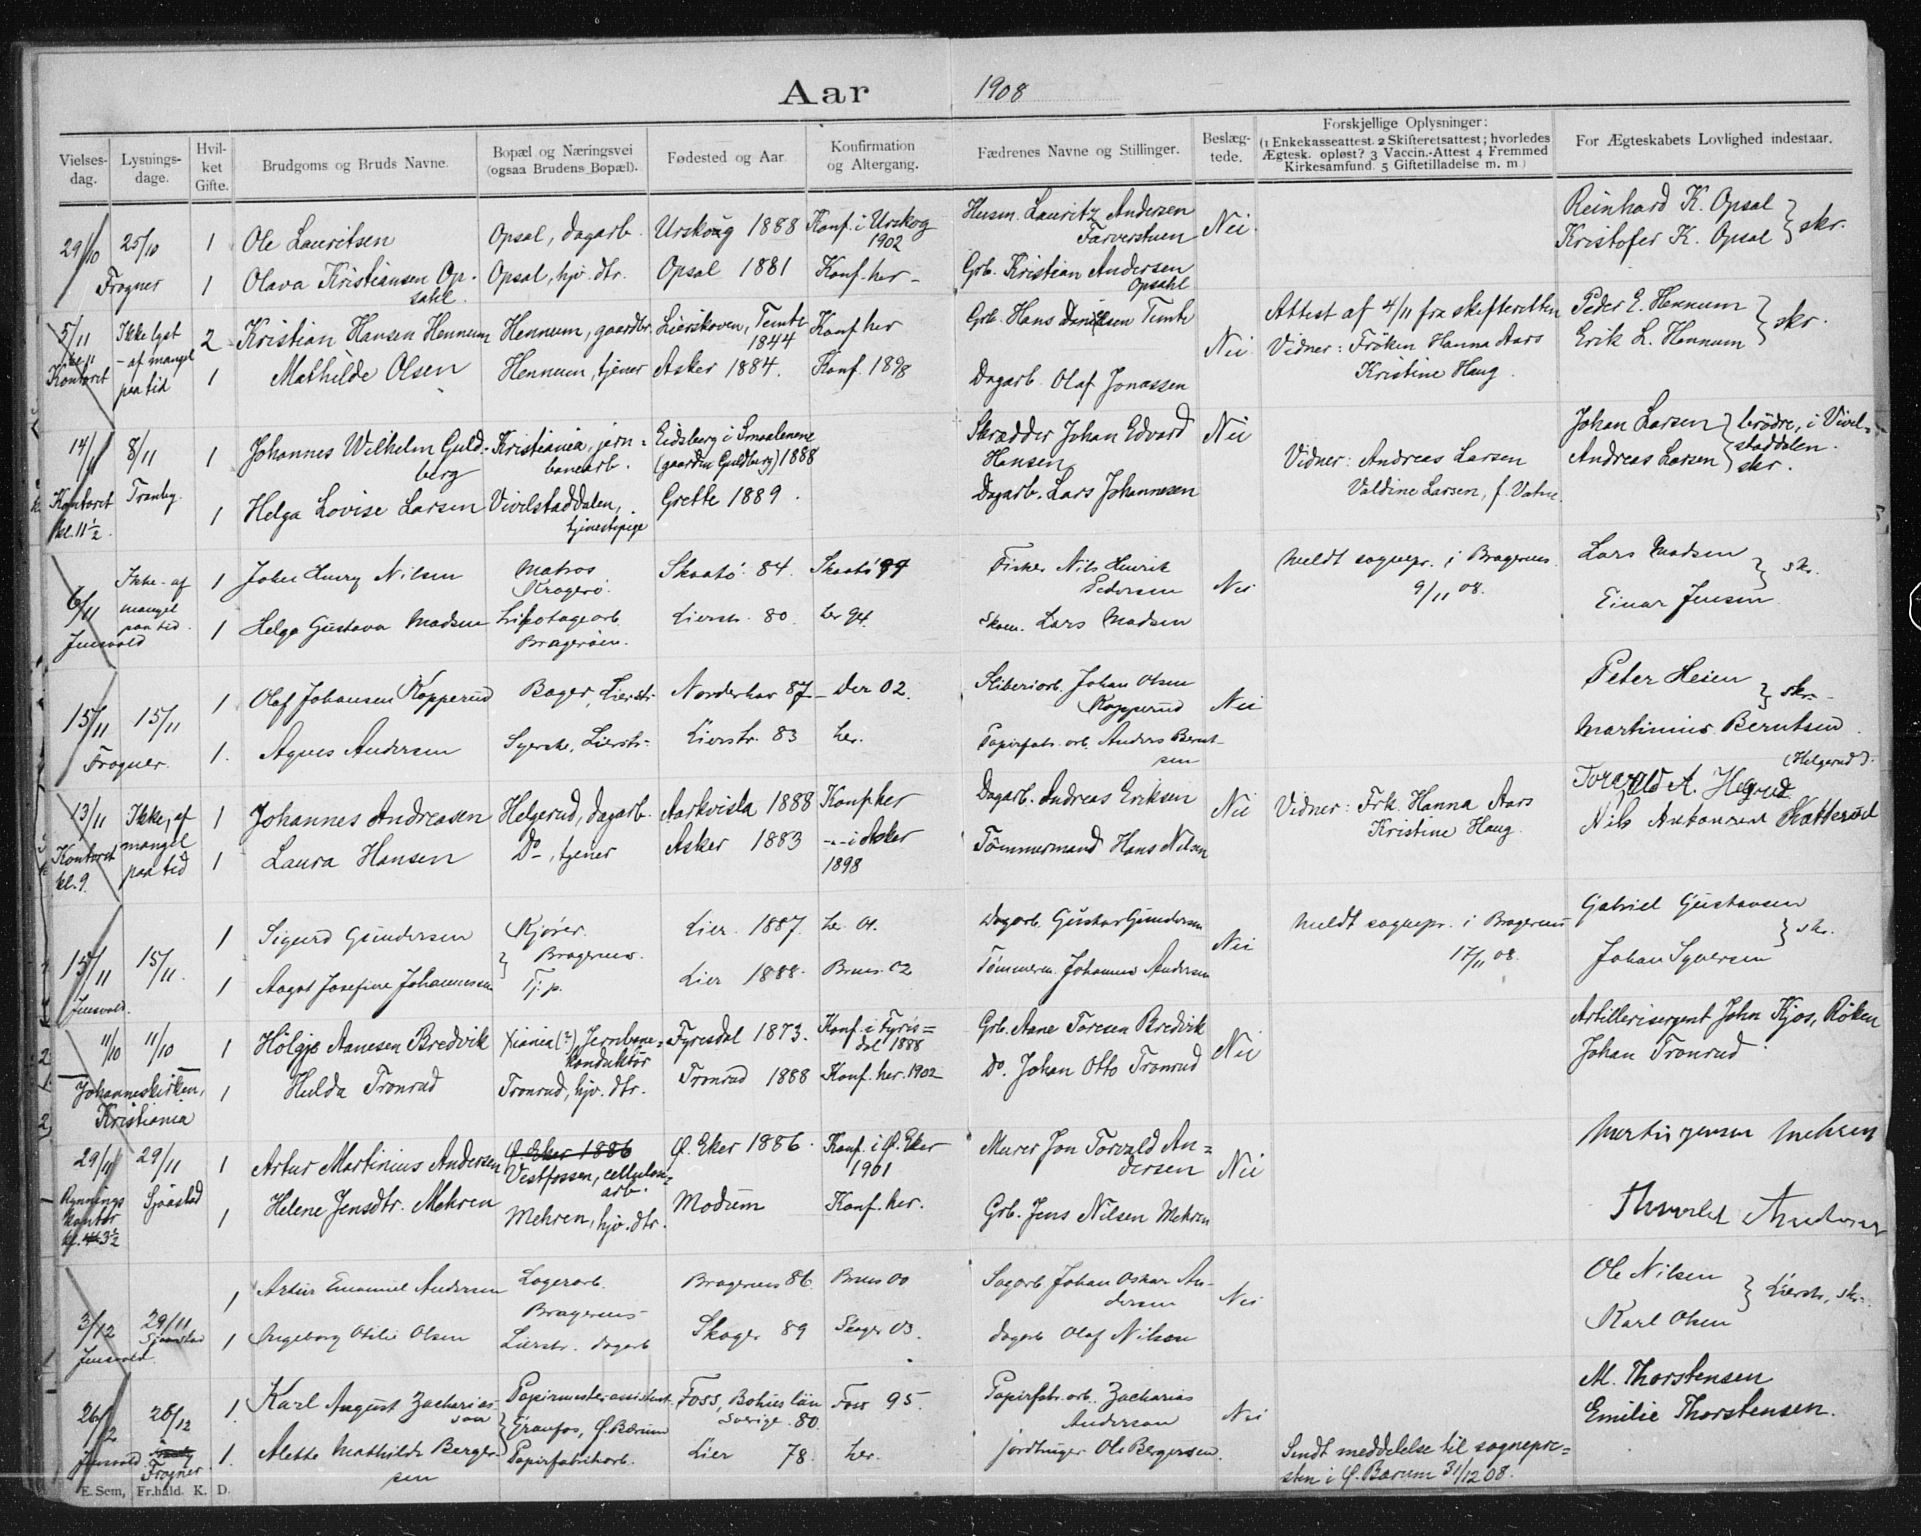 Aar 1908
Vielses-dag. Lysnings-dage. Hvil-ket Gifte. Brudgoms og Bruds Navne. Bopæl og Næringsvei (ogsaa Brudens Bopæl). Fødested og Aar. Konfirmation og Altergang. Fædrenes Navne og Stillinger. Beslæg-tede. Forskjellige Oplysninger: (1 Enkekasseattest. 2 Skifteretsattest; hvorledes Ægtesk. opløst? 3 Vaccin.-Attest 4 Fremmed Kirkesamfund. 5 Giftetilladelse m. m.) For Ægteskabets Lovlighed indestaar.
29/10 25/10 1 Ole Lauritsen Opsal, dagarb. Urskoug 1888 Konf. i Urskog 1902 Husm. Lauritz Andersen Farverstuen Nei Reinhard K. Opsal
Kristofer K. Opsal } skr.
Frogner 1 Olava Kristiansen Opsahl. Opsal, hjv. dtr. Opsal 1881 Konf. her – Grb. Kristian Andersen Opsahl
5/11 Ikke lyst – af mangel paa tid 2 Kristian Hansen Hennum Hennum, gaardbr. Lierskoven, Temte 1844 Konf her Grb. Hans Danielsen Temte Nei Attest af 4/11 fra skifteretten Peder E. Hennum
Vidner: Frøken Hanna Aars Erik L. Hennum } skr.
Kristine Haug.
Kontoret 1 Mathilde Olsen Hennum, tjener Asker 1884. Konf. 1898 Dagarb. Olaf Jonassen
14/11 8/11 1 Johannes Wilhelm Guldberg Kristiania, jernbanearb. Eidsberg i Smaalenene (gaarden Guldberg) 1888 Skrædder Johan Edvard Hansen Nei Johan Larsen
Vidner: Andreas Larsen Andreas Larsen } brødre, i Vivelstaddalen. skr.
Valdine Larsen, f. Vatne.
Kontoret kl. 11½ Tranby. 1 Helga Lovise Larsen Vivilstaddalen, tjenestepige Grette 1889. Dagarb. Lars Johannesen
6/11 Ikke af mangel paa tid 1 John Henry Nilsen Matros Kragerø. Skaatø 84. Skaatø 99 Fisker Nils Henrik Pedersen Nei Meldt sognepr. i Bragernes 9/11 08. Lars Madsen
Einar Jensen } skr.
Jensvold 1 Helga Gustava Madsen Bragerøen. Lierstr. 80. her 94. Skom. Lars Madsen
15/11 15/11 1 Olaf Johansen Kopperud Bager, Lierstr. Norderhov 87 – Der 02. Sliberiarb. Johan Olsen Kopperud Nei Peter Heien
Martinius Berntsen. } skr.
Frogner. 1. Agnes Andersen Syerske, Lierstr. Lierstr. 83 her. Papirfabr. arb. Anders Berntsen
(Helgerud).
13/11 Ikke, af mangel paa tid 1 Johannes Andreasen Helgerud, dagarb. Aarkvisla 1888 Konf her Dagarb. Andreas Eriksen Nei Vidner: Frk. Hanna Aars Torvald A. Hegrud
Kristine Haug. Nils Antonsen Katterud
Kontoret kl. 9. 1 Laura Hansen Do –, tjener Asker 1883 –"– i Asker 1898 Tømmermand Hans Nilsen
15/11 15/11. 1 Sigurd Gundersen Kjører Bragernes. Lier. 1887. her 01. Dagarb. Gustav Gundersen Nei Meldt sognepr. i Bragernes 17/11 08. Gabriel Gustavsen
Johan Syversen } skr.
Jensvold. 1 Aagot Josefine Johannessen Tj. p. Lier 1888. Brnes. 02 Tømmerm. Johannes Andersen
11/10 11/10 1 Holgje Aanesen Bredvik Xiania (?) Jernbanekonduktør Fyresdal 1873. Konf. i Fyrisdal 1888 Grb. Aane Toresen Bredvik Nei Artillerisergent John Kjos, Røken
Johan Tronrud
Johanneskirken, Kristiania 1 Hulda Tronrud Tronrud, hjv. dtr. Tronrud 1888 Konf. her. 1902 Do. Johan Otto Tronrud
29/11 29/11 1 Artur Martinius Andersen Ø. Eker 1886 Vestfossen, cellulosearb. Ø. Eker 1886. Konf. i Ø. Eker 1901 Murer Jon Torvald Andersen Nei Martin Jensen Mehren
kontor kl. 3½ Sjaastad 1 Helene Jensdtr. Mehren Mehren, hjv. dtr. Modum Konf. her. Grb. Jens Nilsen Mehren Thorvald Andersen
3/12 29/11 Sjaastad 1 Artur Emanuel Andersen Lagerarb. Bragernes Bragernes 86 Brnes 00 Sagarb. Johan Oskar Andersen Nei Ole Nilsen
Karl Olsen } Lierstr., skr.
Jensvold. 1 Ingeborg Otilie Olsen Lierstr. dagarb Skoger 89 Skoger 03. Dagarb Olaf Nilsen
26/12 26/12 1. Karl August Zachariasson Papirmesterassistent Granfos, Ø. Bærum Foss, Bohus län Sverige. 80. Foss 95. Papirfabr. arb. Zacharias Anderson Nei M. Thorstensen
Emilie Thorstensen.
Jensvold Frogner 1. Alette Mathilde Bergersen Papirfabrikarb. Lier 78. her. jordbruger Ole Bergersen. Sendt meddelelse til sognepresten i Ø. Bærum 31/12 08.
E. Sem, Fr.hald. K. D.